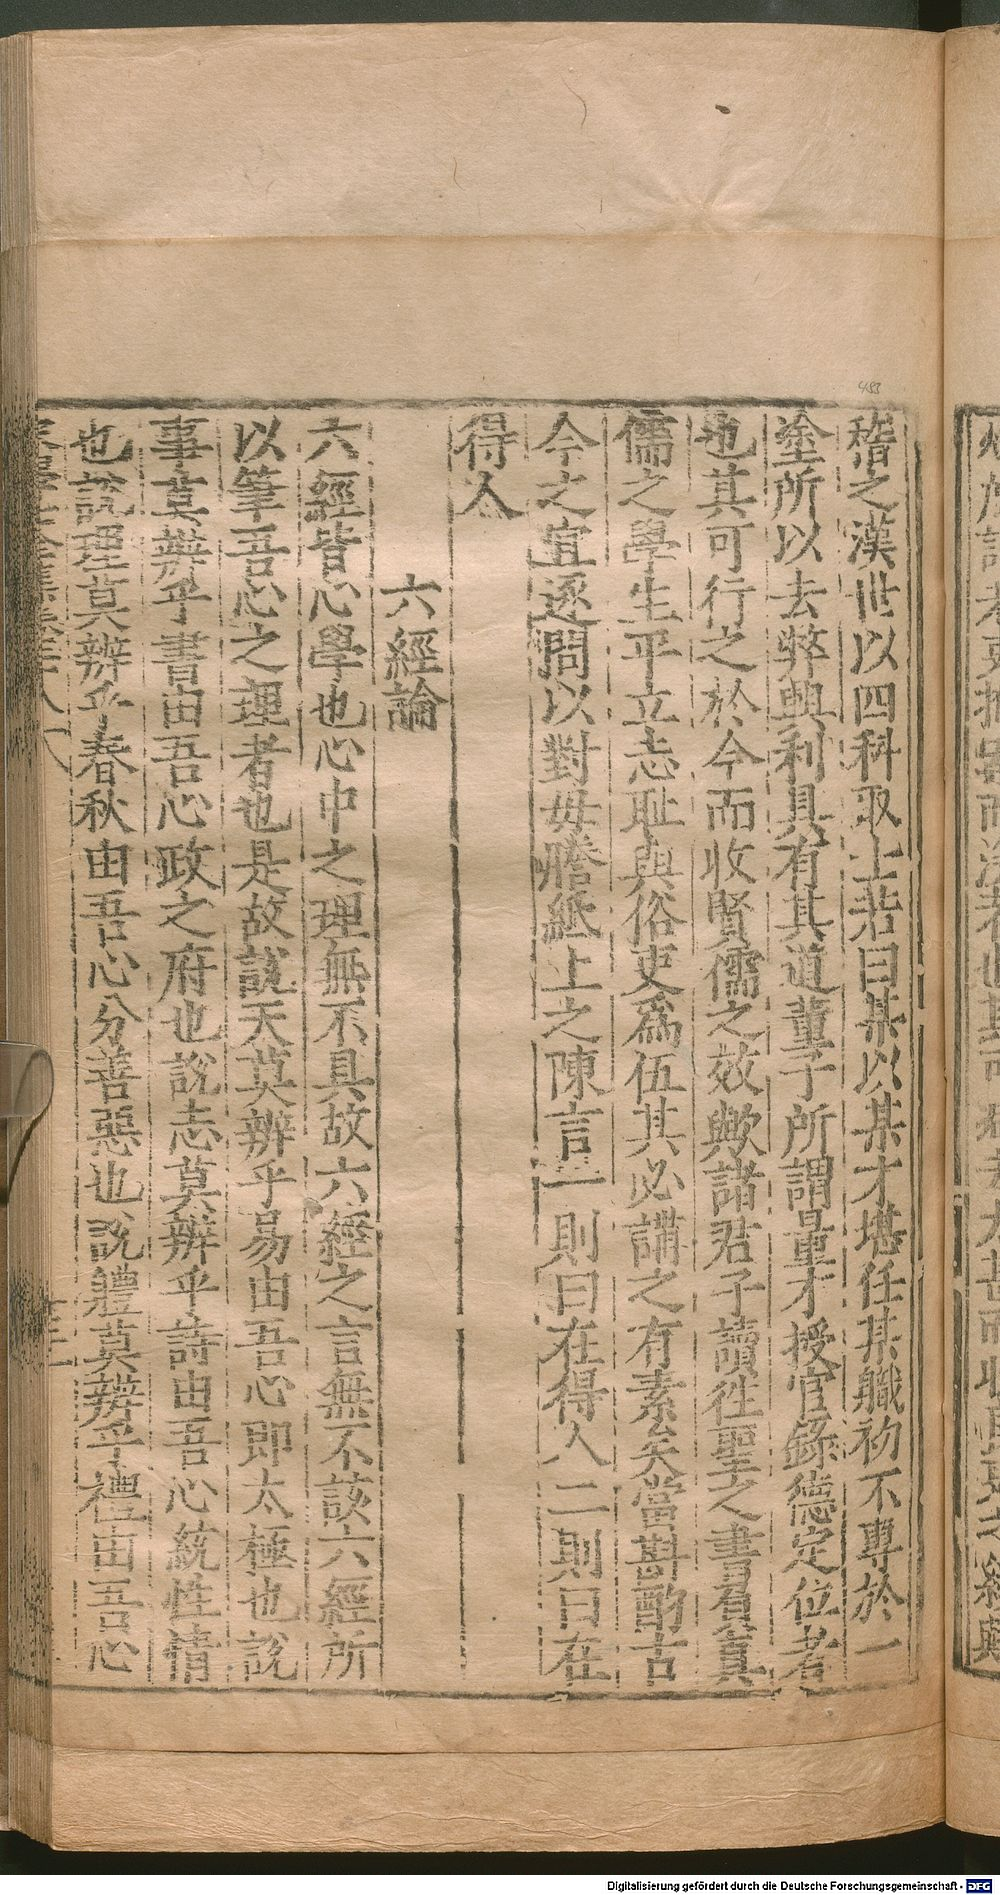 稽之漢世以四科取士若曰某以某才堪任某職初不專於一
塗所以去弊興利具有其道董子所謂量才授官錄德定位者
也其可行之於今而收賢儒之效歟諸君子讀徃聖之書眞
儒之學生平立志耻與俗吏爲伍其必講之有素矣當斟酌古
今之宜逐問以對毋謄紙上之陳言一則曰在得人二則曰在
得人
六經論
六經皆心學也心中之理無不具故六經之言無不該六經所
以筆吾心之理者也是故說天莫辨乎易由吾心即太極也說
事莫辨乎書由吾心政之府也說志莫辨乎詩由吾心統性情
也說理莫辨乎春秋由吾心分善惡也說軆莫辨乎禮由吾心
483
Digitalisierung gefördert durch die Deutsche Forschungsgemeinschaft - DFG